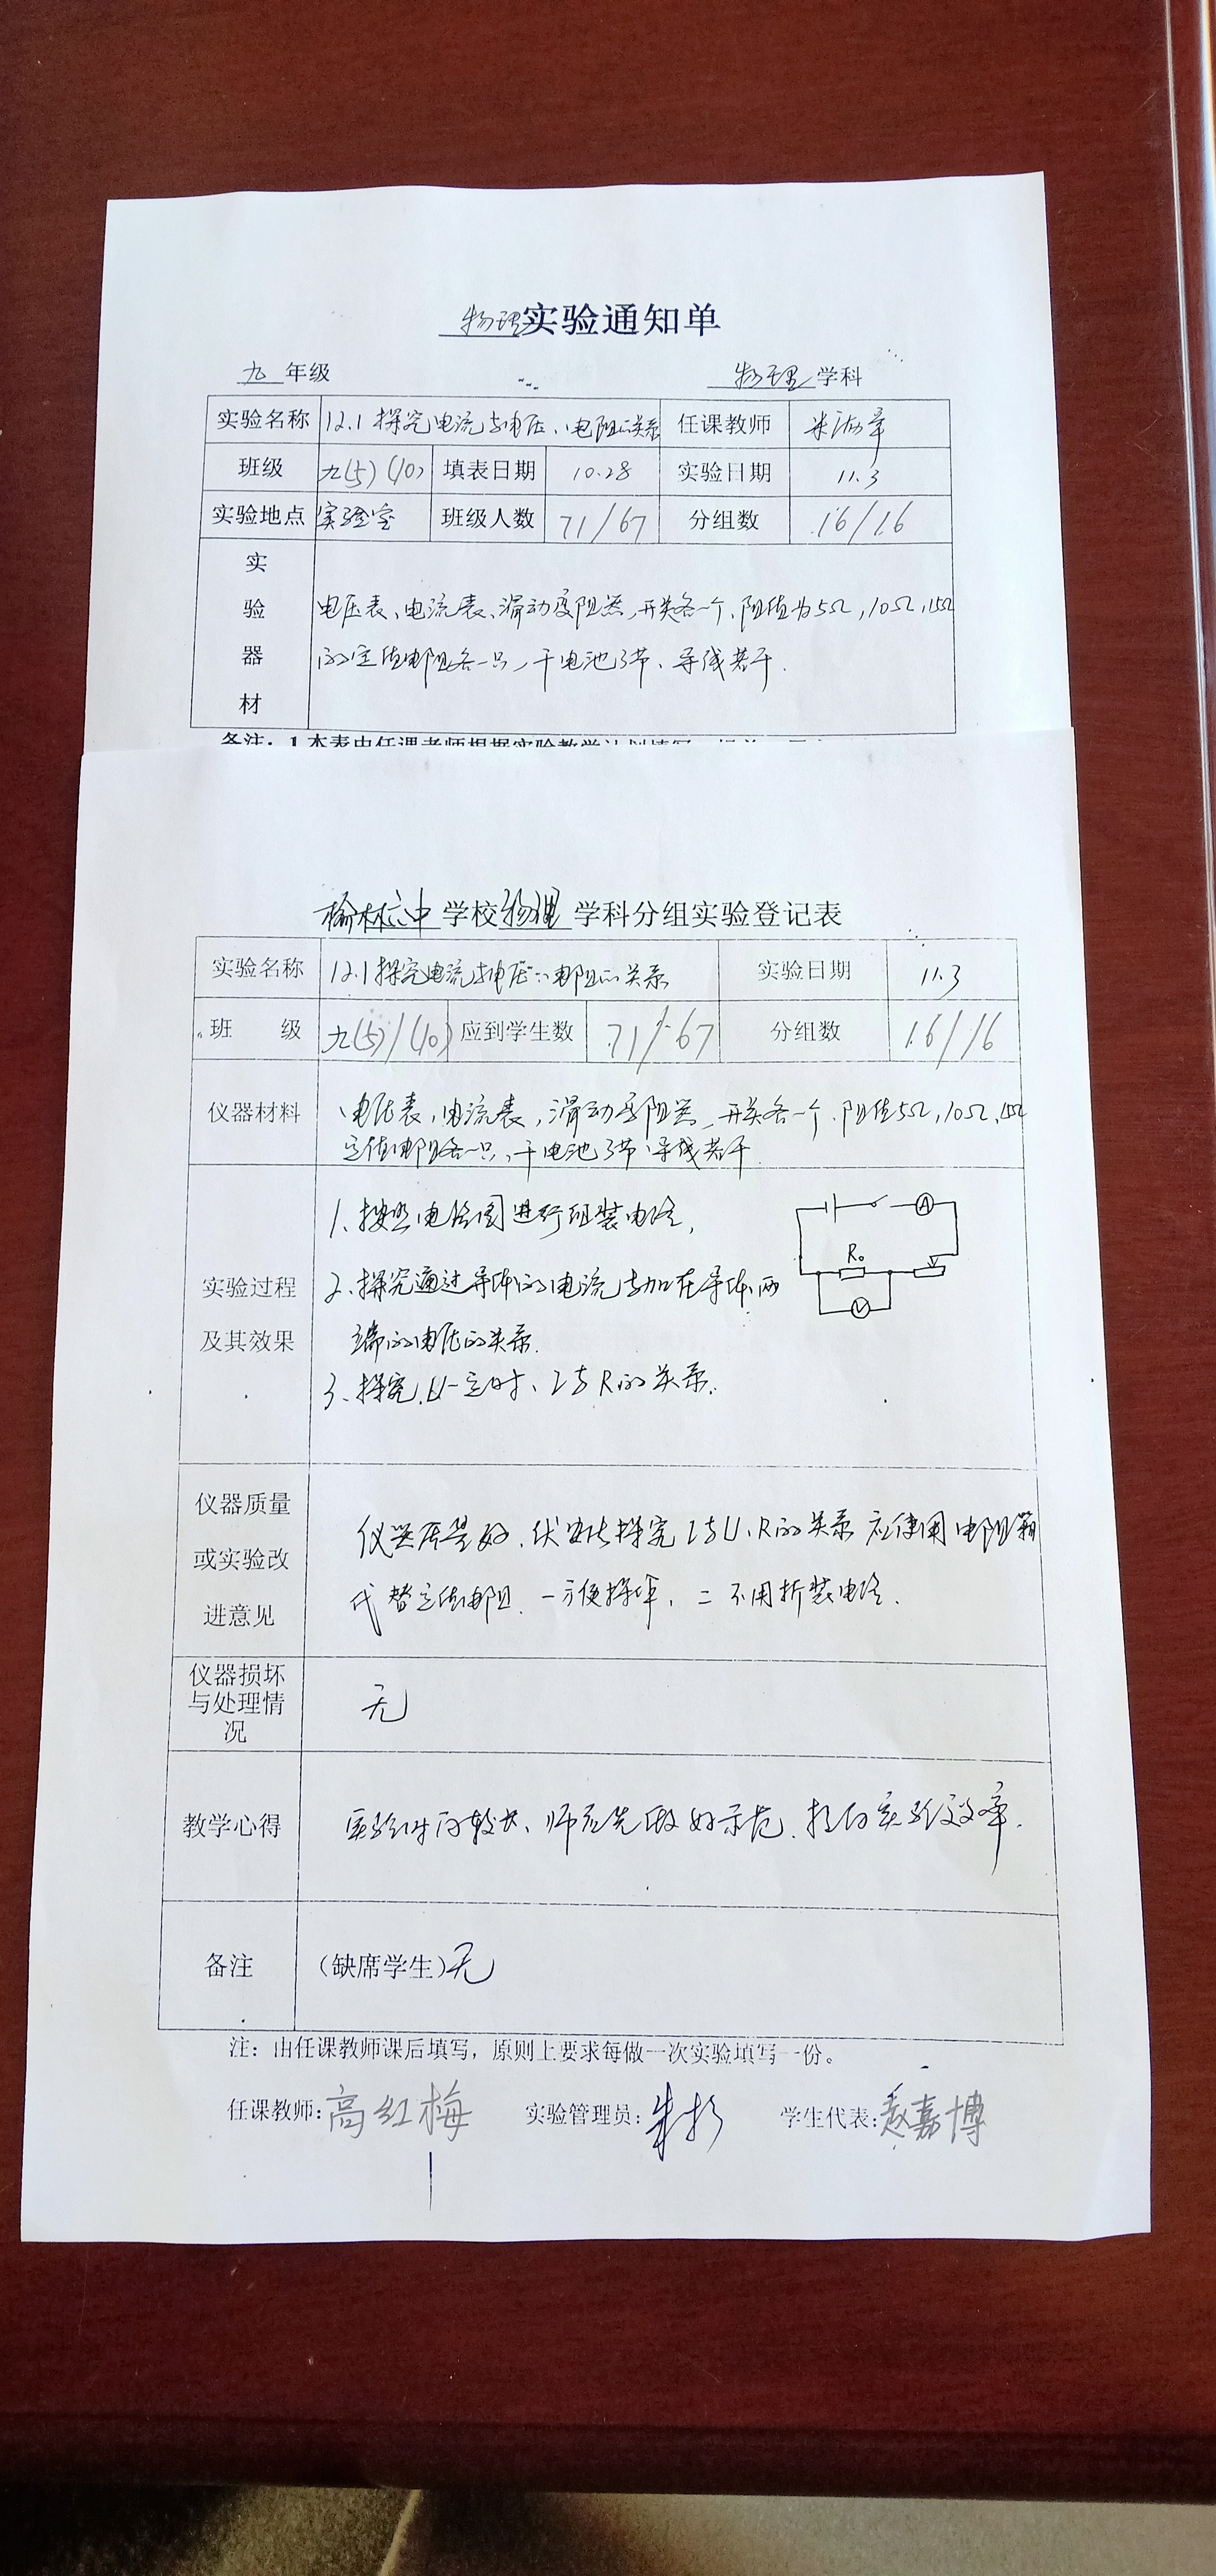 物理实验通知单
九 年级 物理 学科
实验名称 12.1探究电流与电压、电阻的关系 任课教师
班级 九(5)(10) 填表日期 10.28 实验日期 11.3
实验地点 实验室 班级人数 71/67 分组数 16/16
实验器材 电压表、电流表、滑动变阻器,开关各一个、阻值为5Ω,10Ω,15Ω
的定值电阻各一只,干电池3节、导线若干.
备注:1本表由任课老师根据实验教学计划填写
榆林六中 学校 物理 学科分组实验登记表
实验名称 12.1探究电流与电压、电阻的关系 实验日期 11.3
班 级 九(5)/(10) 应到学生数 71/67 分组数 16/16
仪器材料 电压表,电流表,滑动变阻器,开关各一个.阻值5Ω,10Ω,15Ω
定值电阻各一只,干电池3节、导线若干
实验过程及其效果
1、按照电路图进行组装电路,
2、探究通过导体的电流与加在导体两
端的电压的关系.
3、探究U一定时、I与R的关系.
A
R₀
V
仪器质量或实验改进意见
仪器质量好.伏安法探究I与U、R的关系应使用电阻箱
代替定值电阻.一方便操作,二不用拆装电路.
仪器损坏与处理情况 无
教学心得 实验时间较长、师应先做好示范、提高实验效率.
备注 (缺席学生)无
注:由任课教师课后填写,原则上要求每做一次实验填写一份。
任课教师:高红梅 实验管理员: 学生代表:赵嘉博